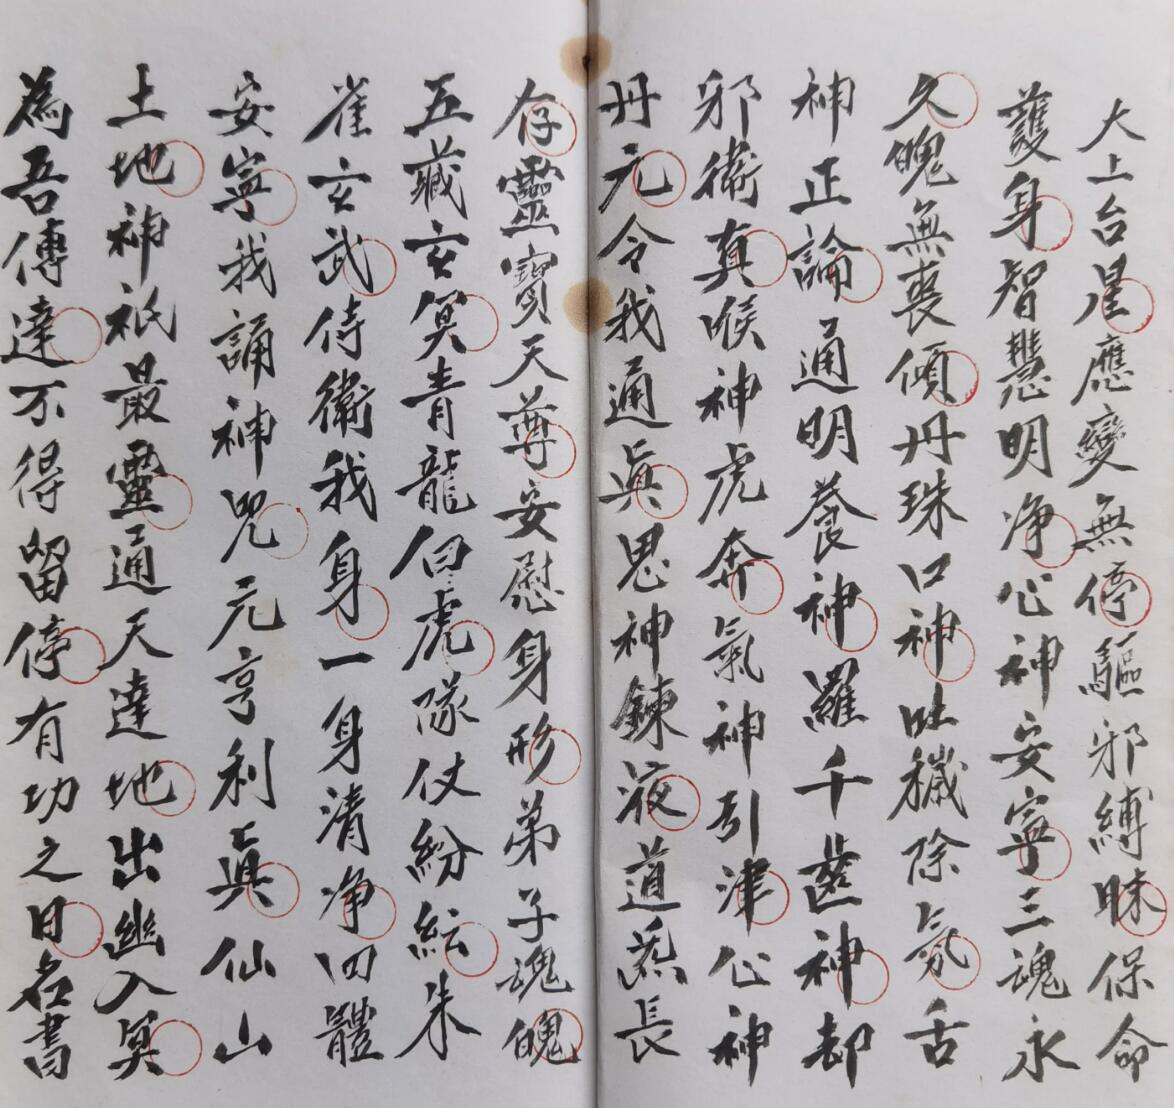 大上台星應變無停驅邪縛昧保命
護身智慧明净心神安寧三魂永
久魄無喪傾丹珠口神吐穢除氛舌
神正論通明養神羅千齒神却
邪衛真喉神虎奔氣神引津心神
丹元令我通眞思神鍊液道炁長
存靈寶天尊安慰身形弟子魂魄
五藏玄冥青龍白虎隊仗紛紜朱
雀玄武侍衛我身一身清净四體
安寧我誦神咒元亨利眞仙山
土地神祇最靈通天達地出幽入冥
為吾傳達不得留停有功之日名書